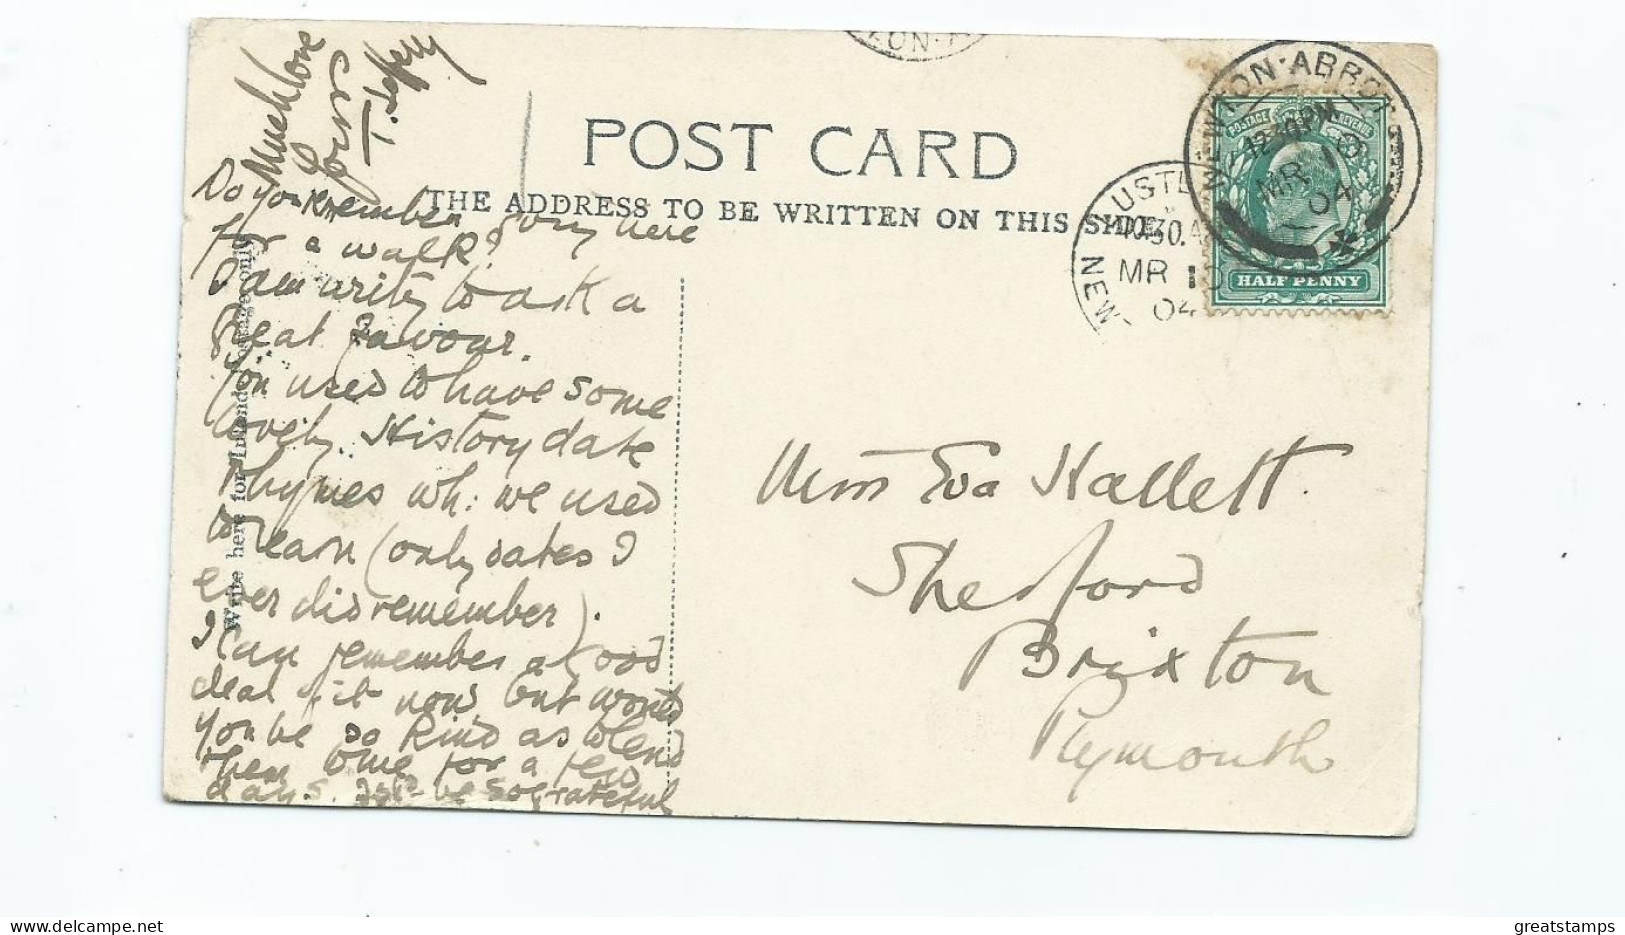 Much love
POST CARD
THE ADDRESS TO BE WRITTEN ON THIS SIDE
Write here for Inland only
Do you remember going here
for a walk?
I am writing to ask a
great favour.
You used to have some
lovely History date
rhymes wh: we used
to learn (only dates I
ever did remember).
I can remember a good
deal of it now but would
you be so kind as to lend
them to me for a few
days. I sh be so grateful
NEWTON·ABBOT
12·30PM
MR 10
04
10.30.A
MR 10
04
POSTAGE REVENUE
HALF PENNY
Miss Eva Hallett.
Shelford
Brixton
Plymouth
greatstamps
delcampe.net